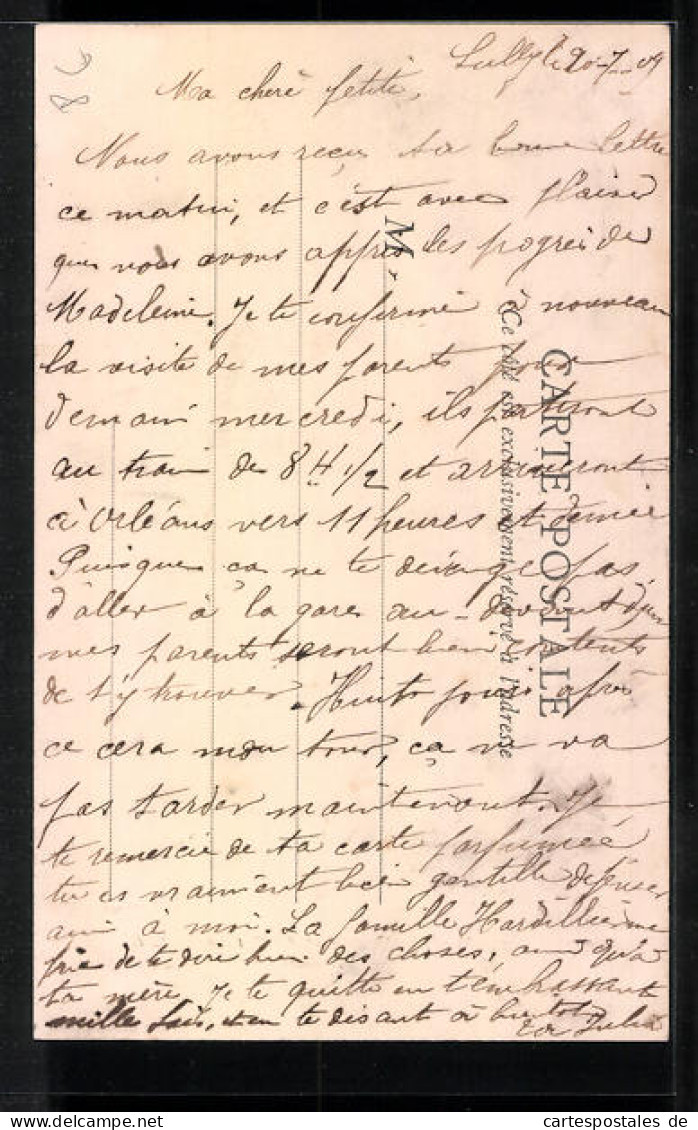 Lully le 20-7-09
Ma cheré petite,
Nous avons reçu ta bonne lettre
ce matin, et c'est avec plaisir
que nous avons appris les progrès de
Madeleine. Je te confirme à nouveau
la visite de mes parents pour
demain mercredi, ils partiront
au train de 8 H 1/2 et arriveront
à Orléans vers 11 heures et demie
Puisque ça ne te dérange pas
d'aller à la gare au-devant d'eux
mes parents seront bien contents
de t'y trouver. Huit jours après
ce cera mon tour, ça ne va
pas tarder maintenant. Je
te remercie de ta carte parfumée
tu es vraiment bien gentille de penser
ainsi à moi. La famille Hardillier me
prie de te dire bien des choses, ainsi qu'à
ta mère. Je te quitte en t'embrassant
mille fois, et en te disant à bientôt
Julia
CARTE POSTALE
Ce côté est exclusivement réservé à l'adresse
M
cartespostales.de